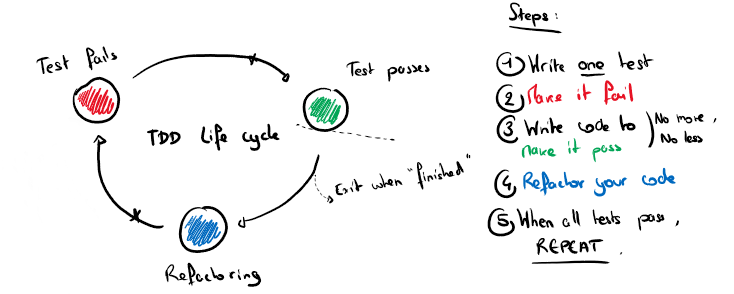 Steps:
Test fails
Test passes
TDD Life cycle
Exit when "finished"
Refactoring
1 Write one test
2 Make it fail
3 Write code to
make it pass
No more,
No less
4 Refactor your code
5 When all tests pass,
REPEAT.